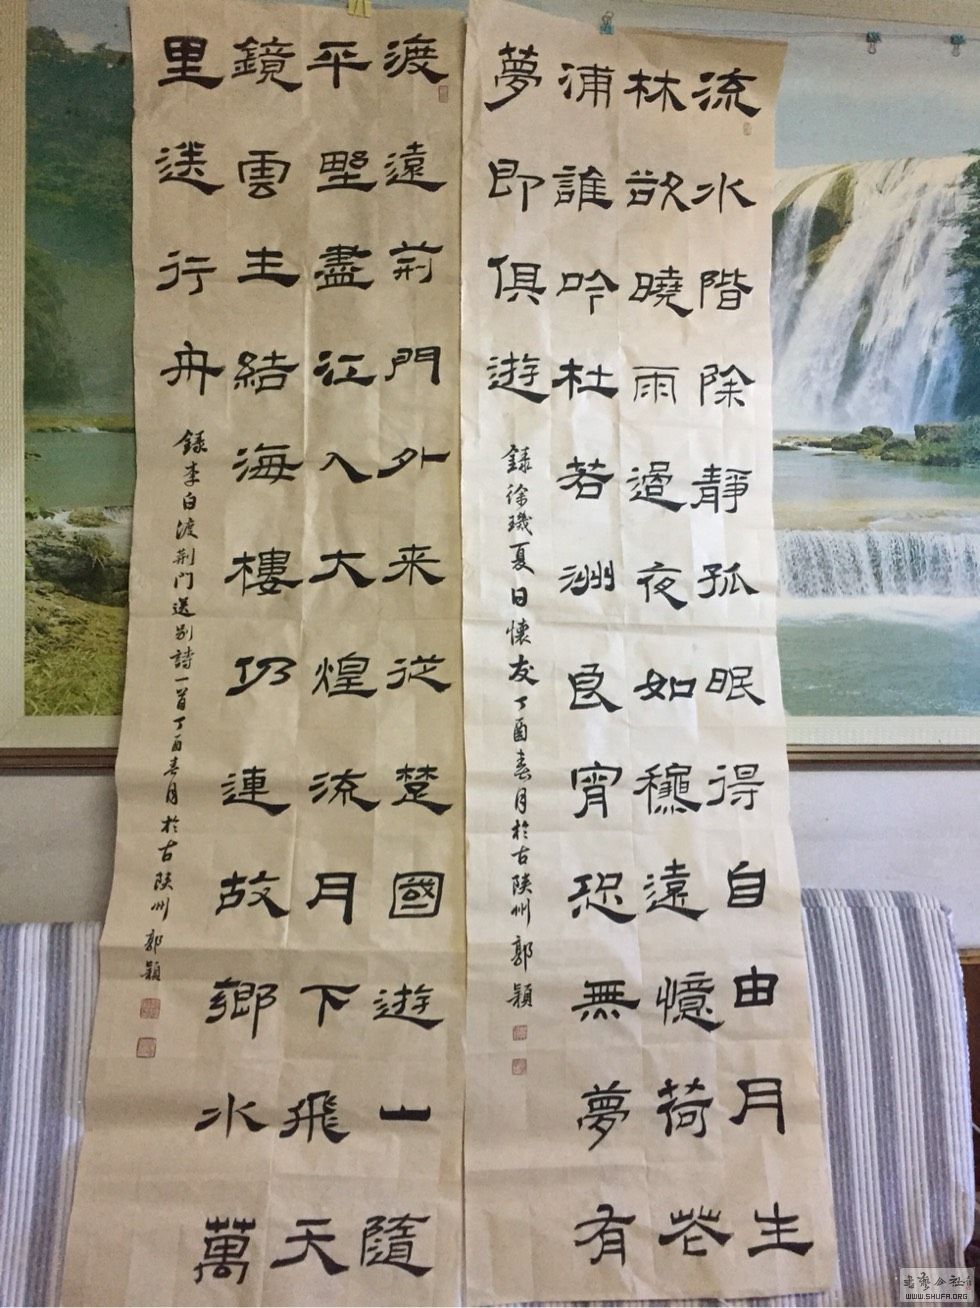 流水階除靜孤眠得自由月生
林欲曉雨過夜如穐遠憶荷花
浦誰吟杜若洲良宵恐無夢有
夢即俱遊
録徐璣夏日懷友丁酉春月於古陝州郭穎
渡遠荊門外来從楚國遊山隨
平野盡江入大煌流月下飛天
鏡雲生結海樓仍連故鄉水萬
里送行舟
録李白渡荊门送别詩一首丁酉春月於古陝州郭穎
書藝公社
WWW.SHUFA.ORG